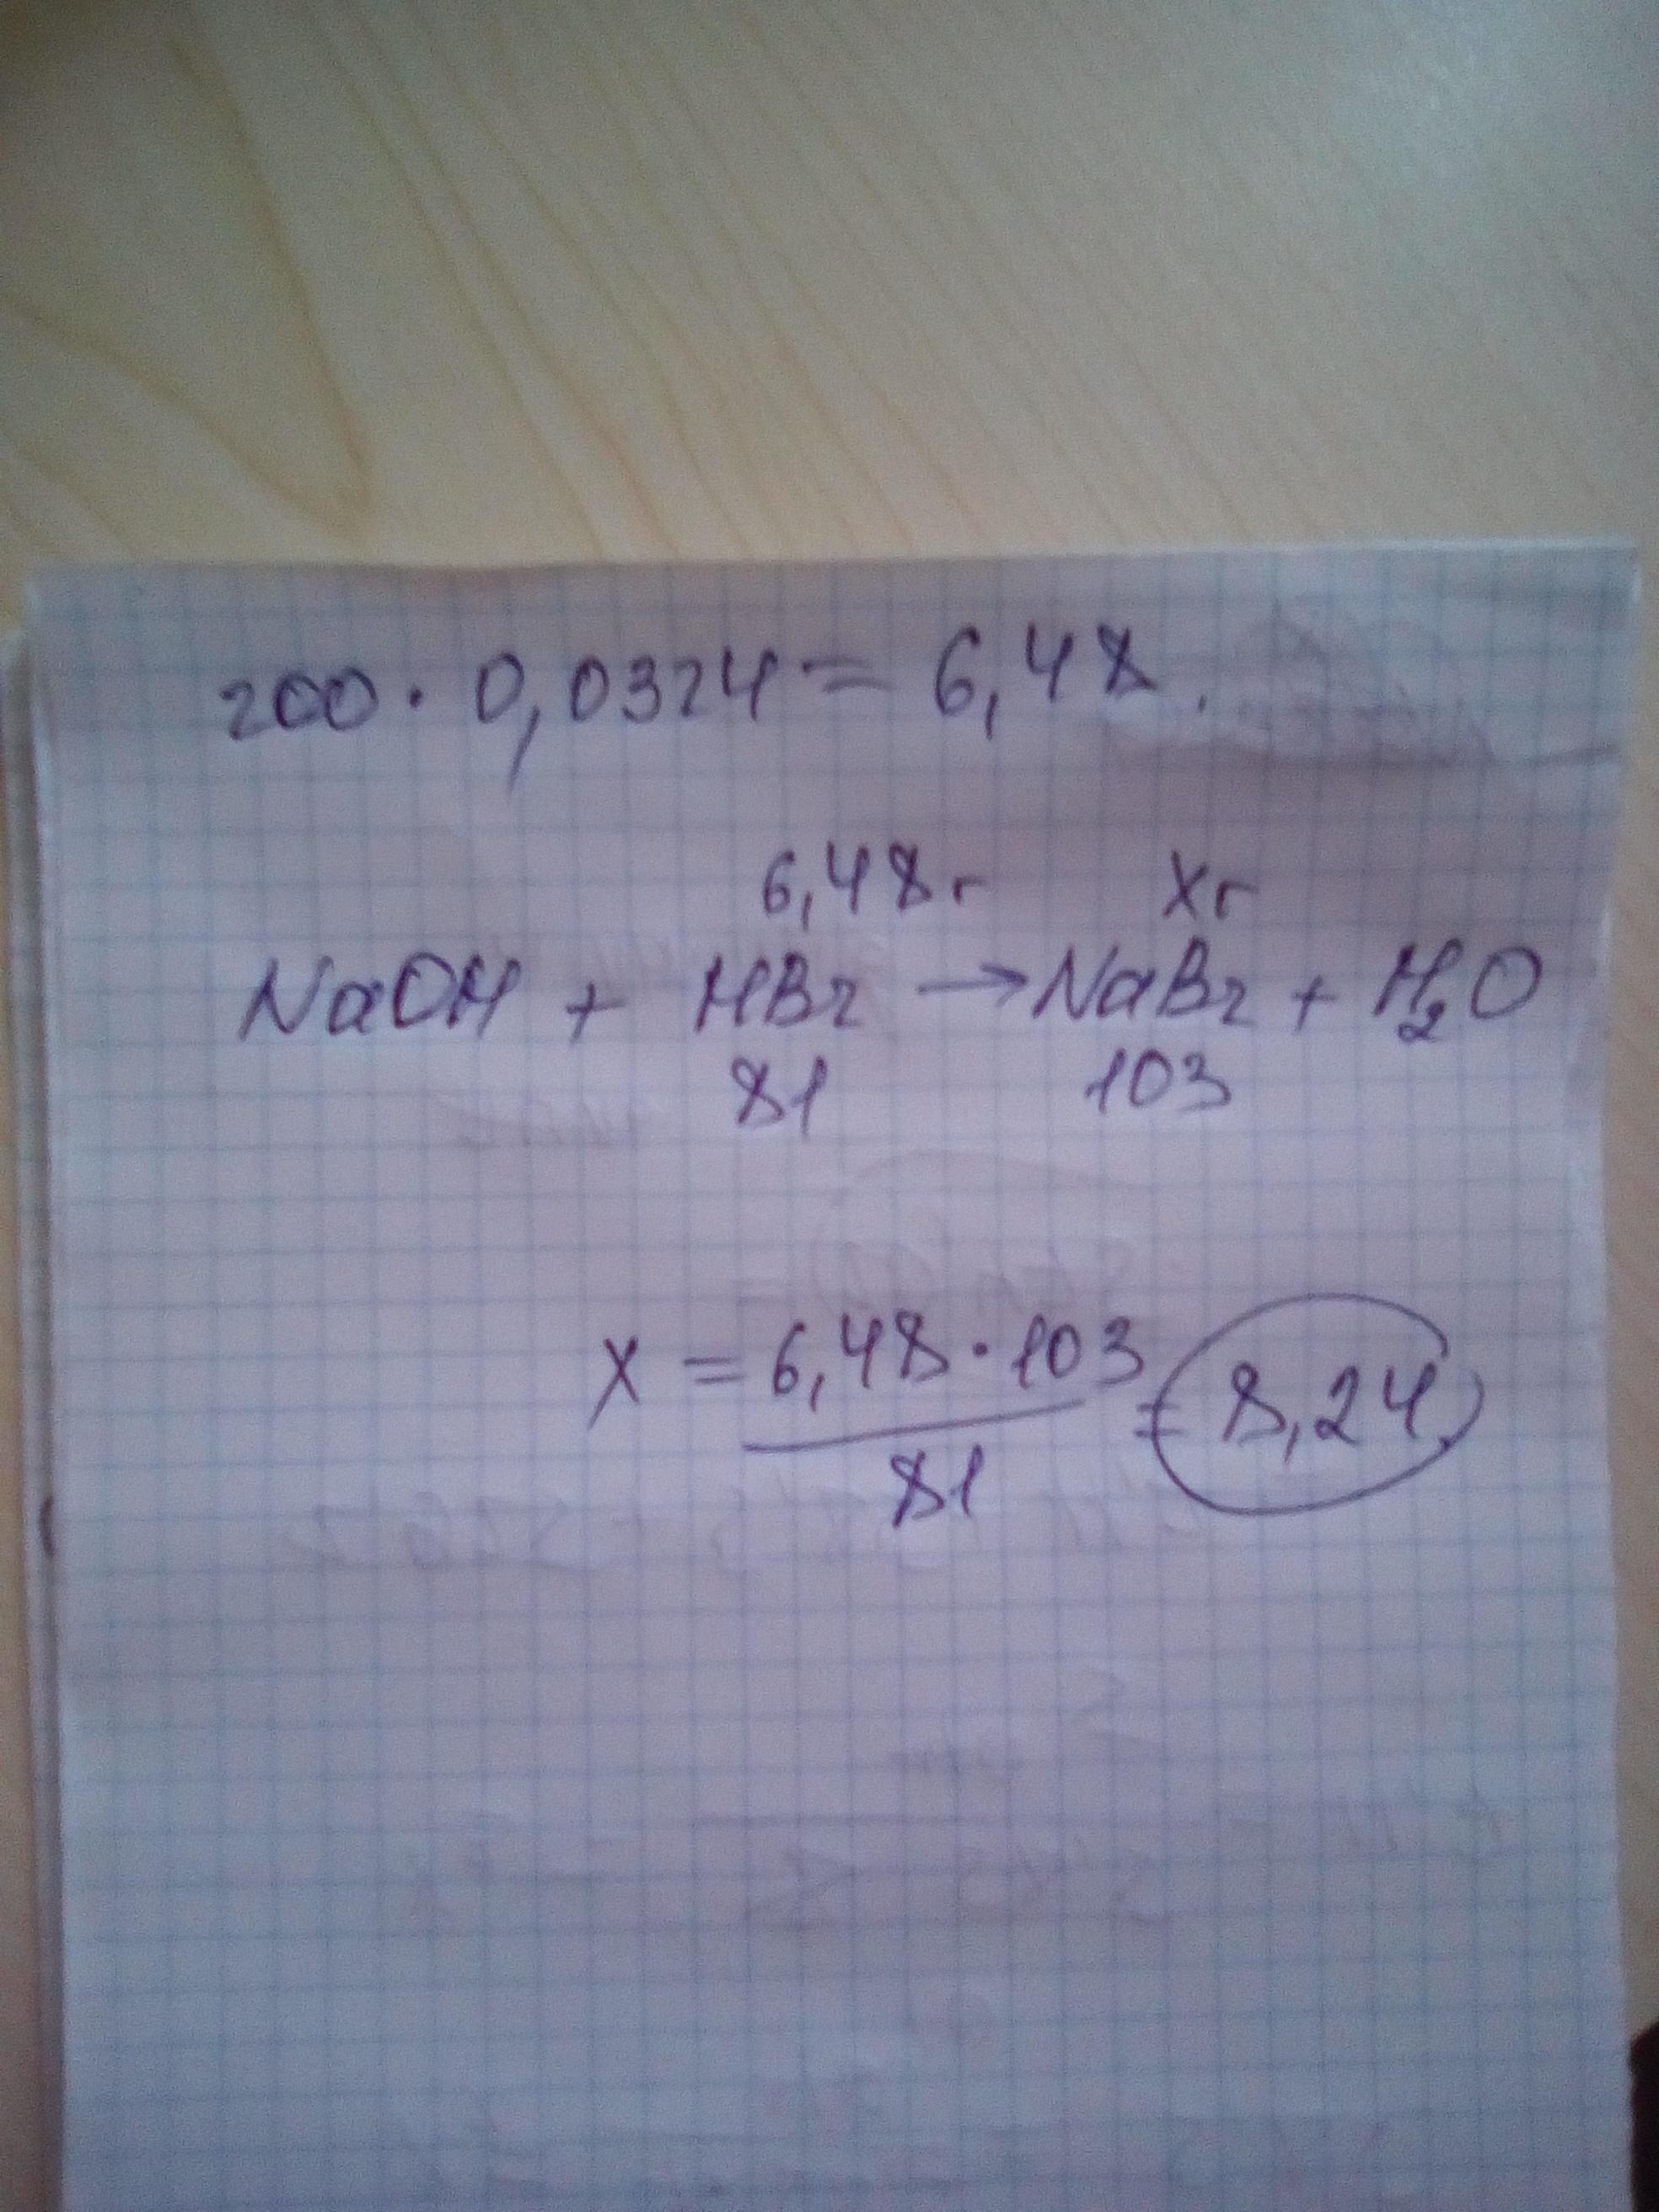 200 · 0,0324 = 6,48.
6,48г xг
NaOH + HBr → NaBr + H₂O
81 103
x = 6,48 · 103 / 81 = 8,24